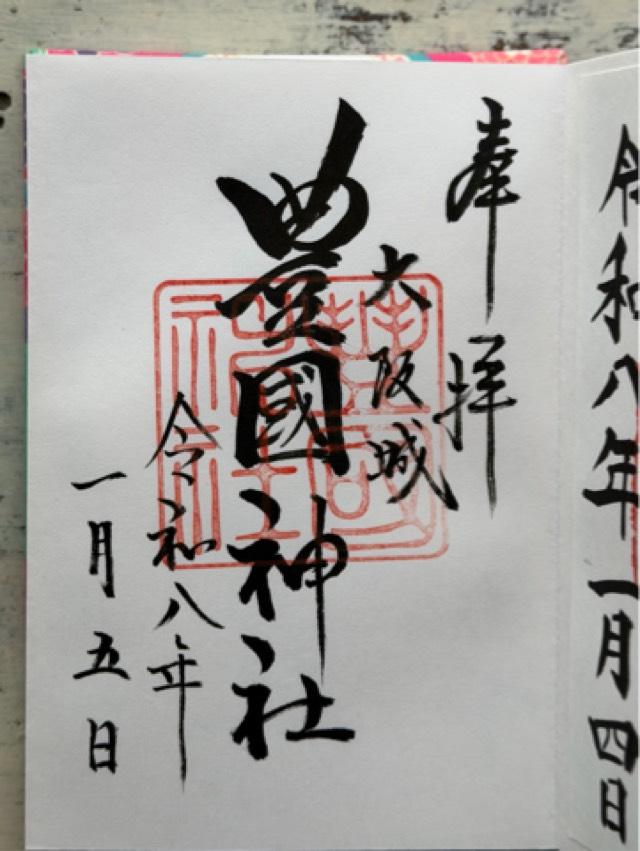 令和八年一月四日
奉拝
大阪城
豊國神社
令和八年
一月五日